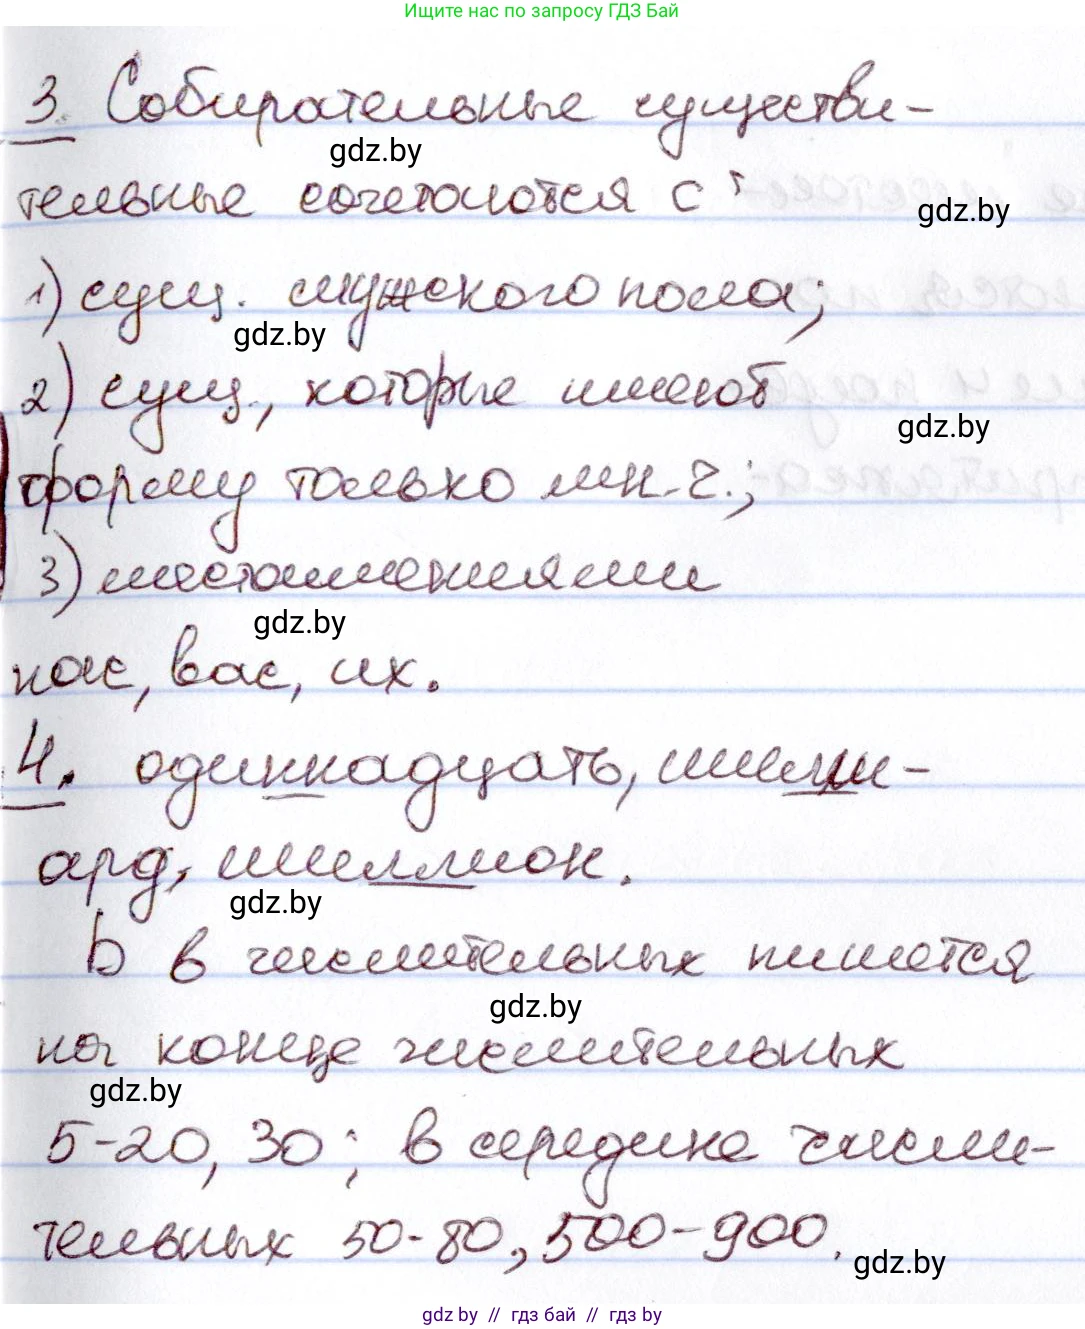 Ищите нас по запросу ГДЗ Бай
3. Собирательные существи-
gdz.by
тельные сочетаются с:
gdz.by
1) сущ. мужского пола;
gdz.by
2) сущ., которые имеют
gdz.by
форму только мн.ч.;
3) местоимениями
gdz.by
нас, вас, их.
4. одиннадцать, милли-
ард, миллион.
gdz.by
Ь в числительных пишется
gdz.by
на конце числительных
gdz.by
5-20, 30; в середине числи-
тельных 50-80, 500-900.
gdz.by
gdz by // гдз бай // gdz by